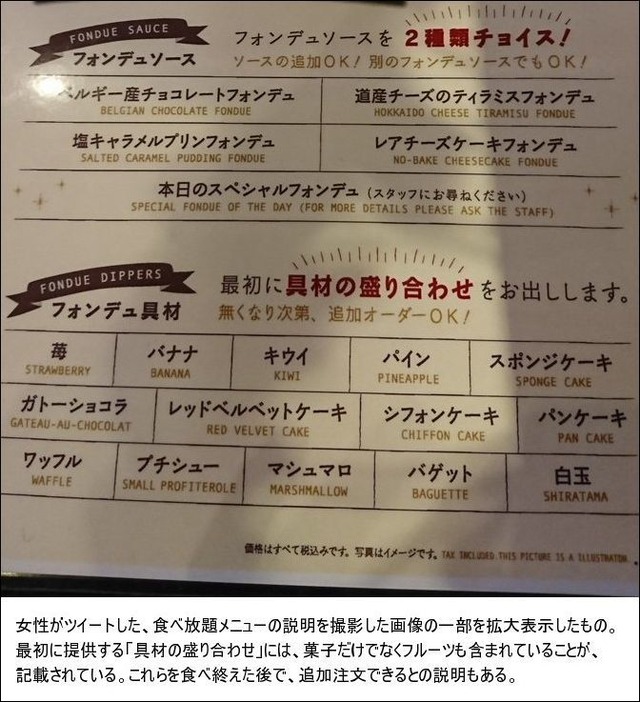 FONDUE SAUCE
フォンデュソース
フォンデュソースを 2種類チョイス!
ソースの追加OK! 別のフォンデュソースでもOK!
ベルギー産チョコレートフォンデュ 道産チーズのティラミスフォンデュ
BELGIAN CHOCOLATE FONDUE HOKKAIDO CHEESE TIRAMISU FONDUE
塩キャラメルプリンフォンデュ レアチーズケーキフォンデュ
SALTED CARAMEL PUDDING FONDUE NO-BAKE CHEESECAKE FONDUE
本日のスペシャルフォンデュ (スタッフにお尋ねください)
SPECIAL FONDUE OF THE DAY (FOR MORE DETAILS PLEASE ASK THE STAFF)
FONDUE DIPPERS
フォンデュ具材
最初に具材の盛り合わせをお出しします。
無くなり次第、追加オーダーOK!
苺 バナナ キウイ パイン スポンジケーキ
STRAWBERRY BANANA KIWI PINEAPPLE SPONGE CAKE
ガトーショコラ レッドベルベットケーキ シフォンケーキ パンケーキ
GATEAU-AU-CHOCOLAT RED VELVET CAKE CHIFFON CAKE PAN CAKE
ワッフル プチシュー マシュマロ バゲット 白玉
WAFFLE SMALL PROFITEROLE MARSHMALLOW BAGUETTE SHIRATAMA
価格はすべて税込みです。写真はイメージです。TAX INCLUDED.THIS PICTURE IS A ILLUSTRATION.
女性がツイートした、食べ放題メニューの説明を撮影した画像の一部を拡大表示したもの。
最初に提供する「具材の盛り合わせ」には、菓子だけでなくフルーツも含まれていることが、
記載されている。これらを食べ終えた後で、追加注文できるとの説明もある。